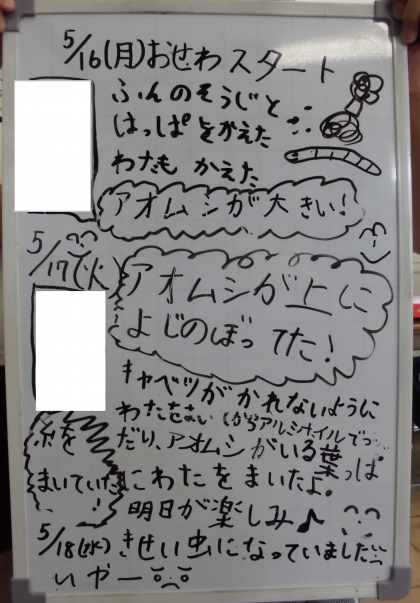 5/16(月)おせわスタート
ふんのそうじと
はっぱをかえた
わたも かえた
アオムシが大きい!
5/17(火)
アオムシが上に
よじのぼってた!
キャベツが かれないように
わたをまい
アルミホイルでつ
だり、アオムシがいる葉っぱ
にわたをまいたよ。
糸を
まいていた
明日が楽しみ♪
5/18(水) きせい虫になっていました
いやー